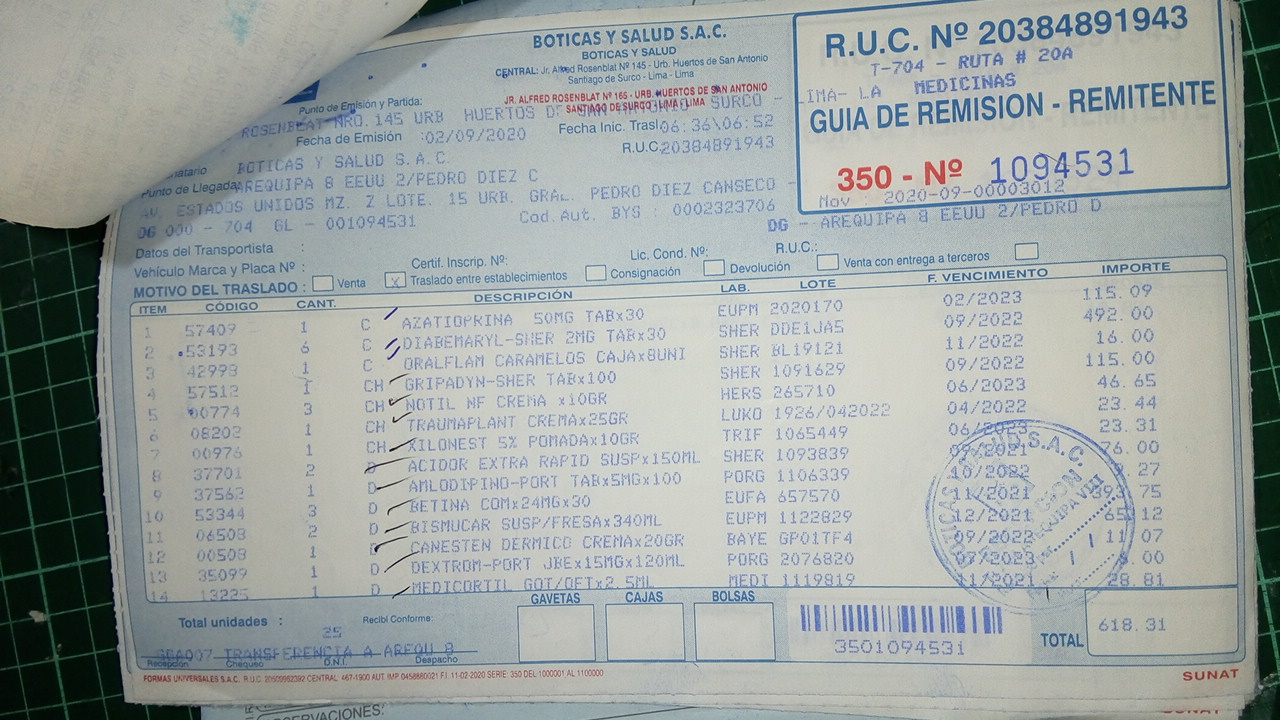 BOTICAS Y SALUD S.A.C.
BOTICAS Y SALUD
CENTRAL: Jr. Alfred Rosenblat Nº 145 - Urb. Huertos de San Antonio
Santiago de Surco - Lima - Lima
JR. ALFRED ROSENBLAT Nº 165 - URB. HUERTOS DE SAN ANTONIO
SANTIAGO DE SURCO - LIMA - LIMA
R.U.C. Nº 20384891943
T-704 - RUTA # 20A
LIMA- LA MEDICINAS
GUIA DE REMISION - REMITENTE
350 - Nº 1094531
Nov : 2020-09-00003012
Punto de Emisión y Partida:
ROSENBLAT NRO. 145 URB HUERTOS DE SAN SURCO -
Fecha de Emisión :02/09/2020 Fecha Inic. Trasl 06:36\06:52
R.U.C 20384891943
BOTICAS Y SALUD S.A.C.
Punto de Llegada AREQUIPA 8 EEUU 2/PEDRO DIEZ C
AV. ESTADOS UNIDOS MZ. Z LOTE. 15 URB. GRAL. PEDRO DIEZ CANSECO -
DG 000 - 704 GL - 001094531 Cod. Aut. BYS : 0002323706 DG - AREQUIPA 8 EEUU 2/PEDRO D
Datos del Transportista :
Vehículo Marca y Placa Nº : Certif. Inscrip. Nº: Lic. Cond. Nº: R.U.C.:
MOTIVO DEL TRASLADO : Venta X Traslado entre establecimientos Consignación Devolución Venta con entrega a terceros
ITEM CÓDIGO CANT. DESCRIPCIÓN LAB. LOTE F. VENCIMIENTO IMPORTE
1 57409 1 C AZATIOPRINA 50MG TABx30 EUPM 2020170 02/2023 115.09
2 53193 6 C DIABEMARYL-SHER 2MG TABx30 SHER DDE1JA5 09/2022 492.00
3 42998 1 C ORALFLAM CARAMELOS CAJAx8UNI SHER BL19121 11/2022 16.00
4 57512 1 CH GRIPADYN-SHER TABx100 SHER 1091629 09/2022 115.00
5 00774 3 CH NOTIL NF CREMA x10GR HERS 265710 06/2023 46.65
6 08202 1 CH TRAUMAPLANT CREMAx25GR LUKO 1926/042022 04/2022 23.44
7 00976 1 CH XILONEST 5% POMADAx10GR TRIF 1065449 06/2023 23.31
8 37701 2 D ACIDOR EXTRA RAPID SUSPx150ML SHER 1093839 09/2021 76.00
9 37562 1 D AMLODIPINO-PORT TABx5MGx100 PORG 1106339 10/2022 27
10 53344 3 D BETINA COMx24MGx30 EUFA 657570 11/2021 393.75
11 06508 2 D BISMUCAR SUSP/FRESAx340ML EUPM 1122829 12/2021 65.12
12 00508 1 D CANESTEN DERMICO CREMAx20GR BAYE GP01TF4 09/2022 11 07
13 35099 1 D DEXTROM-PORT JBEx15MGx120ML PORG 2076820 07/2023 .00
14 13225 1 D MEDICORTIL GOT/OFTx2.5ML MEDI 1119819 11/2021 28.81
BOTICAS Y SALUD S.A.C.
AREQUIPA VIII
Total unidades : 25 Recibí Conforme: GAVETAS CAJAS BOLSAS
3501094531
TOTAL 618.31
TRANSFERENCIA A AREQU 8
Recepción Chequeo D.N.I Despacho
FORMAS UNIVERSALES S.A.C. CENTRAL: 467-1900 AUT. IMP 0458860021 F.I. 11-02-2020 SERIE: 350 DEL 1000001 AL 1100000
SUNAT
OBSERVACIONES: